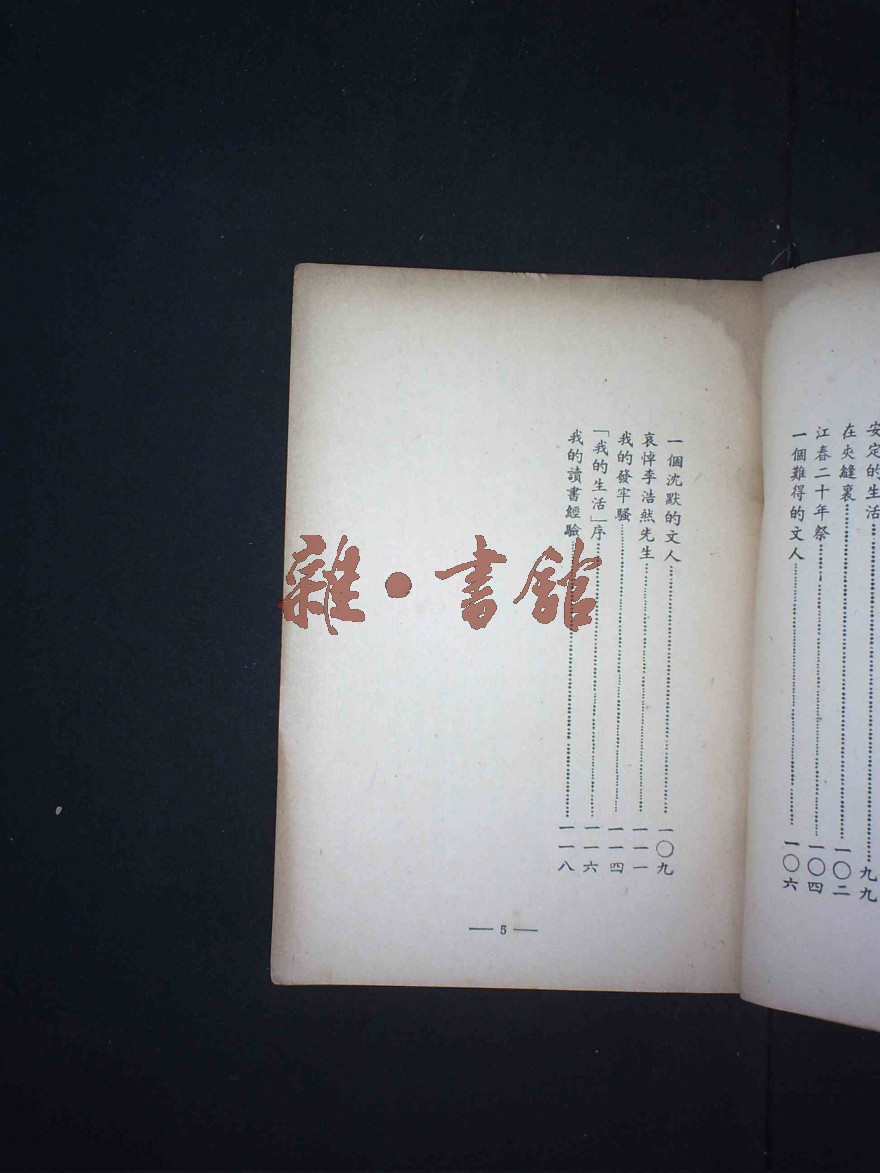 安定的生活……九九
在夾縫裏……一〇二
江春二十年祭……一〇四
一個難得的文人……一〇六
一個沈默的文人……一〇九
哀悼李浩然先生……一一一
我的發牢騷……一一四
「我的生活」序……一一六
我的讀書經驗……一一八
— 5 —
雜•書館